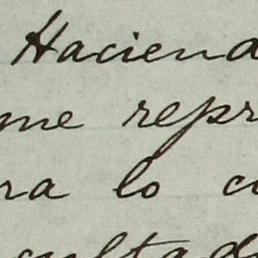 Hacienda
me repr
ra lo c
cultad